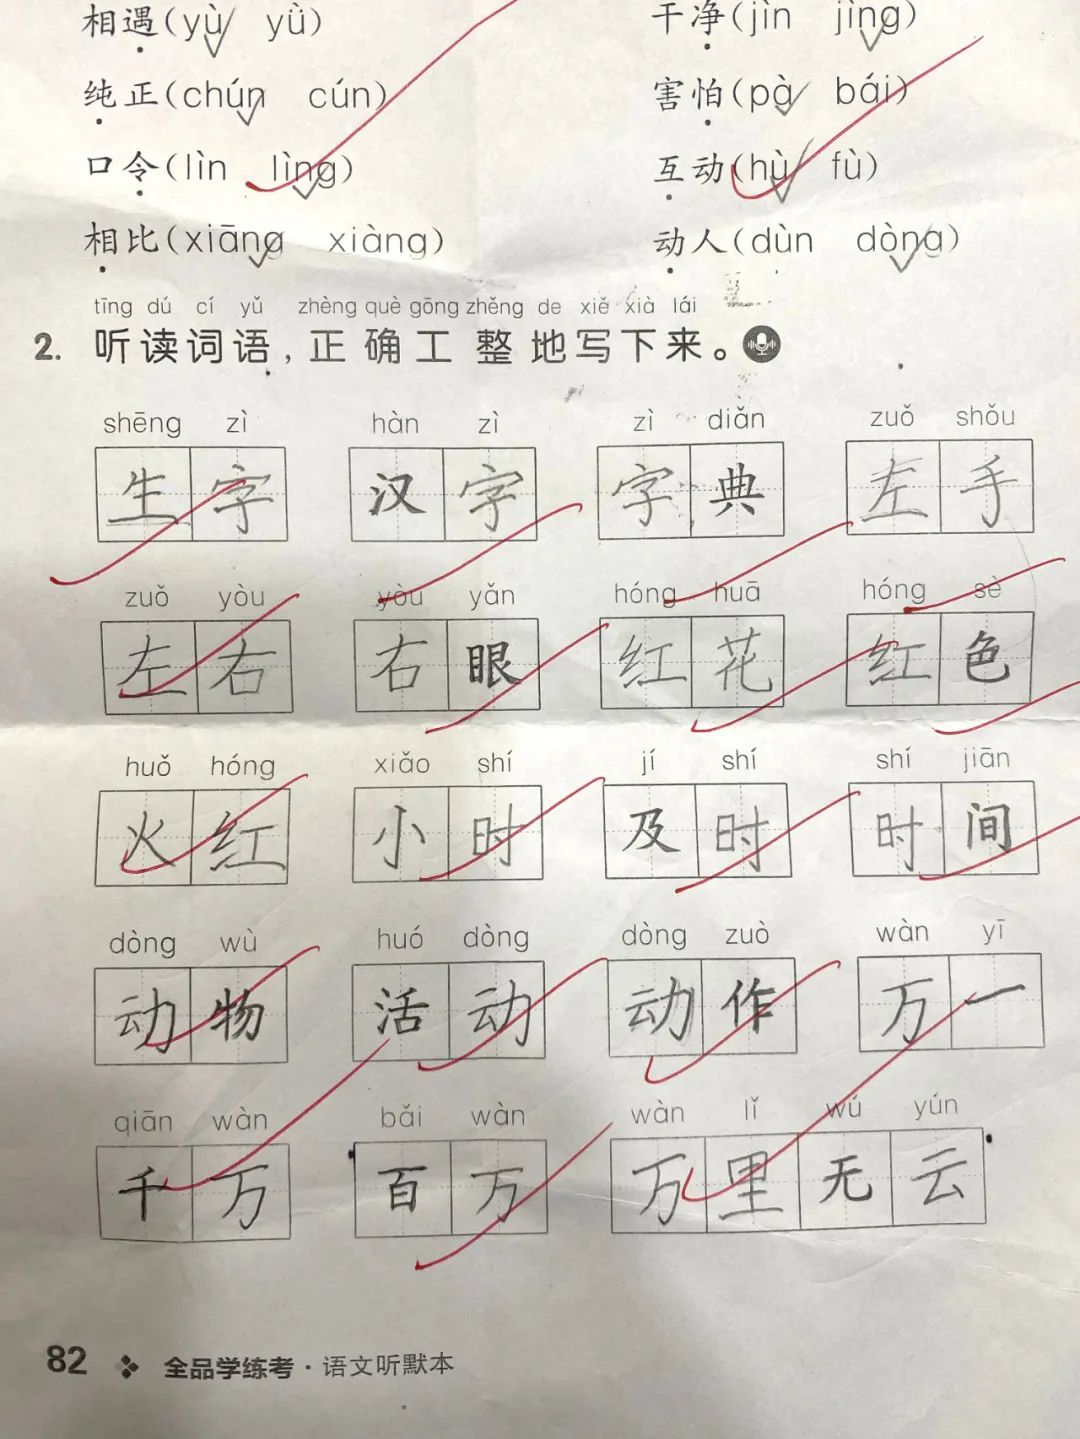 相遇(yù yǜ) 干净(jìn jìng)
纯正(chún cún) 害怕(pà bái)
口令(lìn lìng) 互动(hù fù)
相比(xiāng xiàng) 动人(dùn dòng)
tīng dú cí yǔ zhèng què gōng zhěng de xiě xià lái
2. 听读词语,正确工整地写下来。
shēng zì hàn zì zì diǎn zuǒ shǒu
生字 汉字 字典 左手
zuǒ yòu yòu yǎn hóng huā hóng sè
左右 右眼 红花 红色
huǒ hóng xiǎo shí jí shí shí jiān
火红 小时 及时 时间
dòng wù huó dòng dòng zuò wàn yī
动物 活动 动作 万一
qiān wàn bǎi wàn wàn lǐ wú yún
千万 百万 万里无云
82 全品学练考·语文听默本